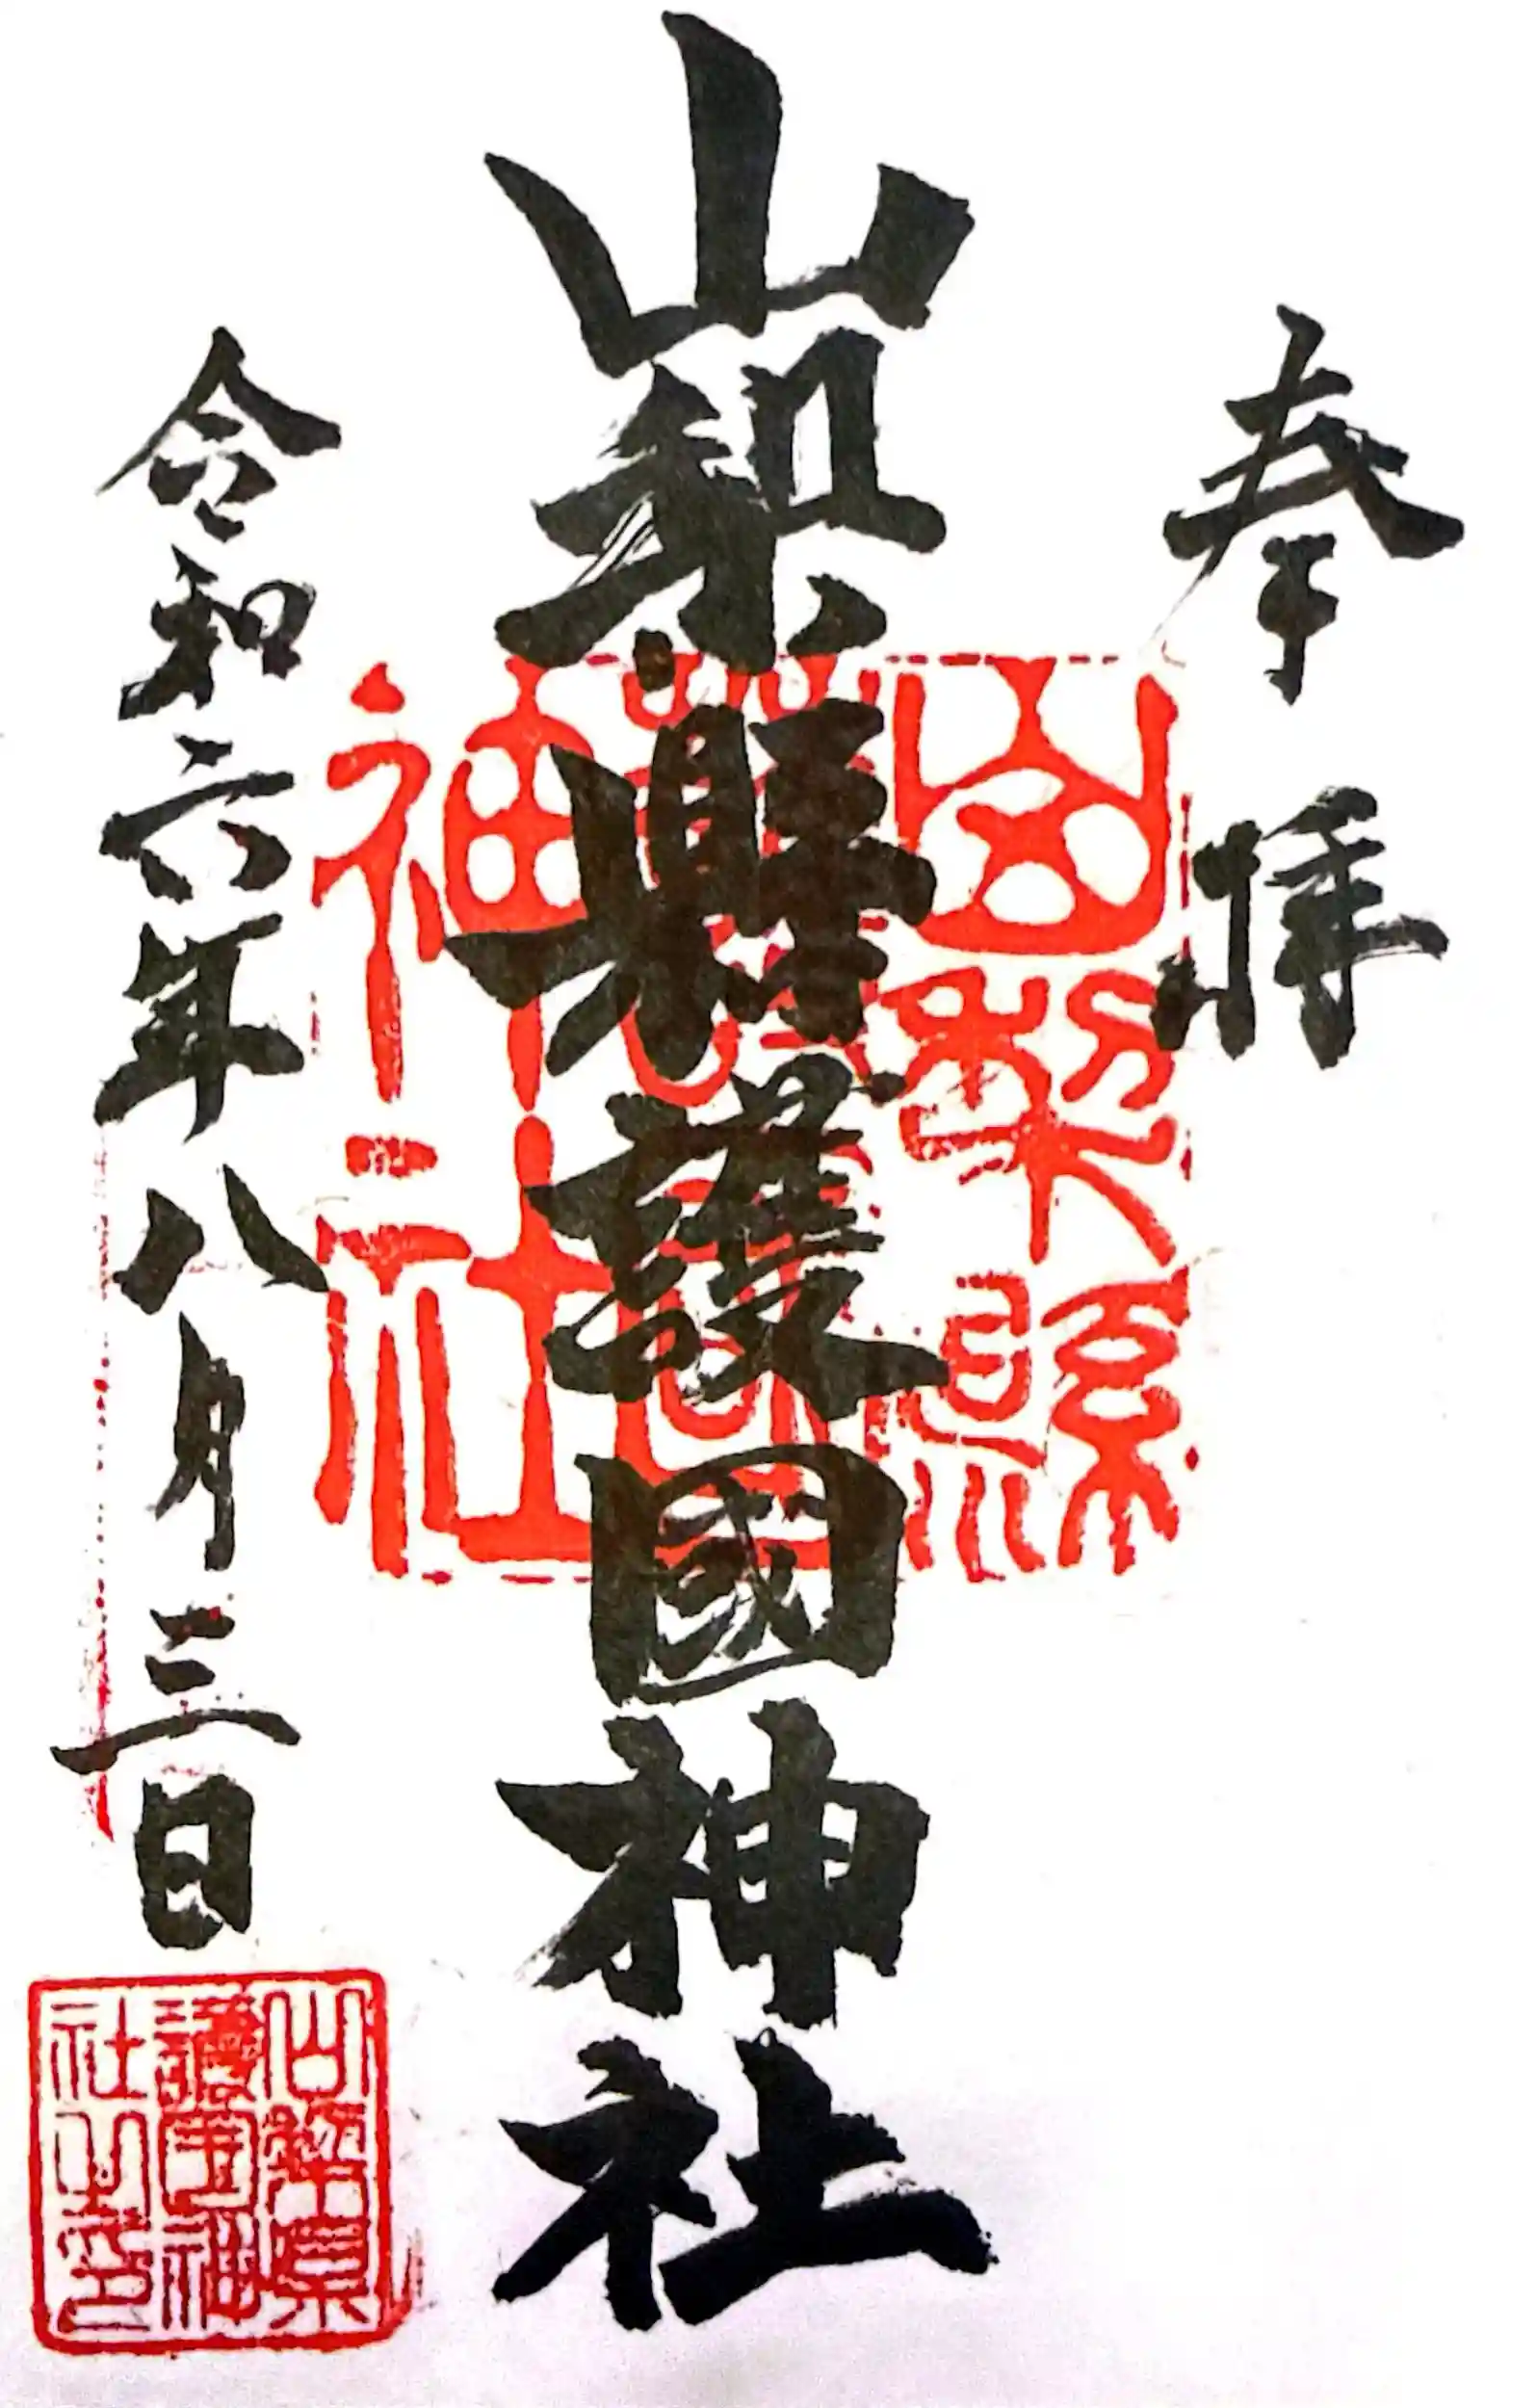 奉拝
山梨縣護國神社
令和六年八月三日
山梨縣護國神社
山梨県護国神社之印